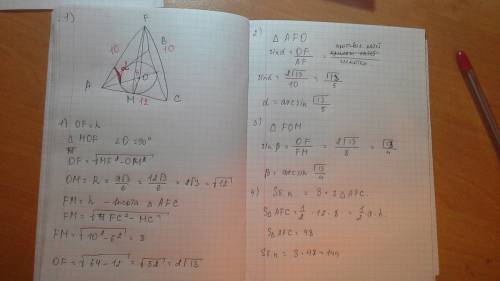 1)
F
10
B
10
α
A
O
M
12
C
1) OF = h
△ MOF ∠O = 90°
OF = √MF² - OM²
OM = R = a√3/6 = 12√3/6 = 2√3 = √12
FM = h - высота △ AFC
FM = √FC² - MC²
FM = √10² - 6² = 8
OF = √64 - 12 = √52 = 2√13
2)
△ AFO
sin α = OF/AF =
sin α = 2√13/10 = √13/5
α = arcsin √13/5
3)
△ FOM
sin β = OF/FM = 2√13/8 = √13/4
β = arcsin √13/4
4) Sб.п. = 3 × S△AFC
S△AFC = 1/2 · 12 · 8 = 1/2 a · h
S△AFC = 48
Sб.п. = 3 × 48 = 144